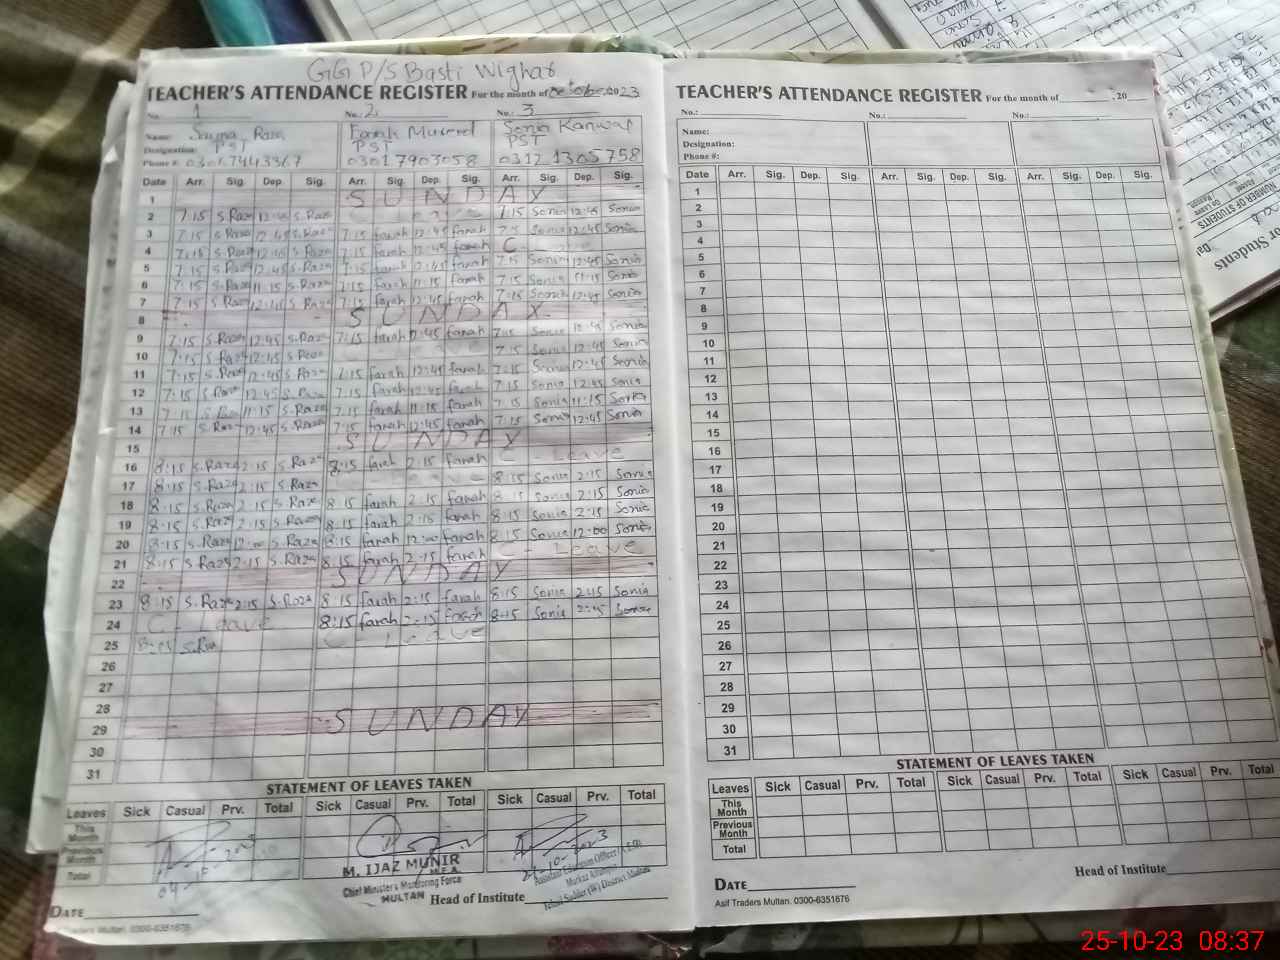 GG P/S Basti Wighar
TEACHER'S ATTENDANCE REGISTER For the month of October, 2023
No. 1 No.: 2 No.: 3
Name: Sayma Raza Farah Sonia Kanwal
Designation: PST PST PST
Phone #: 03017903058 0312 1305758
Date Arr. Sig. Dep. Sig. Arr. Sig. Dep. Sig. Arr. Sig. Dep. Sig.
1 SUNDAY
2 7:15 S.Raza 12:45 S.Raza 7:15 Sonia 12:45 Sonia
3 7:15 S.Raza 12:45 S.Raza 7:15 farah 12:45 farah 7:15 Sonia 12:45 Sonia
4 7:15 S.Raza 12:45 S.Raza 7:15 farah 12:45 farah C-
5 7:15 S.Raza 12:45 S.Raza 7:15 farah 12:45 farah 7:15 Sonia 12:45 Sonia
6 7:15 S.Raza 11:15 S.Raza 7:15 farah 11:15 farah 7:15 Sonia 11:15 Sonia
7 7:15 S.Raza 12:45 S.Raza 7:15 farah 12:45 farah 7:15 Sonia 12:45 Sonia
8 SUNDAY
9 7:15 S.Raza 12:45 S.Raza 7:15 farah 12:45 farah 7:15 Sonia 12:45 Sonia
10 7:15 S.Raza 12:45 S.Raza 7:15 Sonia 12:45 Sonia
11 7:15 S.Raza 12:45 S.Raza 7:15 farah 12:45 farah 7:15 Sonia 12:45 Sonia
12 7:15 S.Raza 12:45 S.Raza 7:15 farah 12:45 farah 7:15 Sonia 12:45 Sonia
13 7:15 S.Raza 11:15 S.Raza 7:15 farah 11:15 farah 7:15 Sonia 11:15 Sonia
14 7:15 S.Raza 12:45 S.Raza 7:15 farah 12:45 farah 7:15 Sonia 12:45 Sonia
15 SUNDAY
16 8:15 S.Raza 2:15 S.Raza 8:15 farah 2:15 farah C - Leave
17 8:15 S.Raza 2:15 S.Raza Leave 8:15 Sonia 2:15 Sonia
18 8:15 S.Raza 2:15 S.Raza 8:15 farah 2:15 farah 8:15 Sonia 2:15 Sonia
19 8:15 S.Raza 2:15 S.Raza 8:15 farah 2:15 farah 8:15 Sonia 2:15 Sonia
20 8:15 S.Raza 12:00 S.Raza 8:15 farah 12:00 farah 8:15 Sonia 12:00 Sonia
21 8:15 S.Raza 2:15 S.Raza 8:15 farah 2:15 farah C - Leave
22 SUNDAY
23 8:15 S.Raza 2:15 S.Raza 8:15 farah 2:15 farah 8:15 Sonia 2:15 Sonia
24 C - Leave 8:15 farah 2:15 farah 8:15 Sonia 2:15 Sonia
25 8:15 S.Raza C Leave
26
27
28
29 SUNDAY
30
31
STATEMENT OF LEAVES TAKEN
Leaves Sick Casual Prv. Total Sick Casual Prv. Total Sick Casual Prv. Total
This Month
Previous Month
Total
M. IJAZ MUNIR
M.E.A.
Chief Minister's Monitoring Force
MULTAN
Assistant Education Officer (A.E.O)
Head of Institute
DATE
Asif Traders Multan. 0300-6351676
TEACHER'S ATTENDANCE REGISTER For the month of , 20
No.: No.: No.:
Name:
Designation:
Phone #:
Date Arr. Sig. Dep. Sig. Arr. Sig. Dep. Sig. Arr. Sig. Dep. Sig.
1
2
3
4
5
6
7
8
9
10
11
12
13
14
15
16
17
18
19
20
21
22
23
24
25
26
27
28
29
30
31
STATEMENT OF LEAVES TAKEN
Leaves Sick Casual Prv. Total Sick Casual Prv. Total Sick Casual Prv. Total
This Month
Previous Month
Total
Head of Institute
DATE
Asif Traders Multan. 0300-6351676
NUMBER OF STUDENTS
On Leave
for Students
25-10-23 08:37